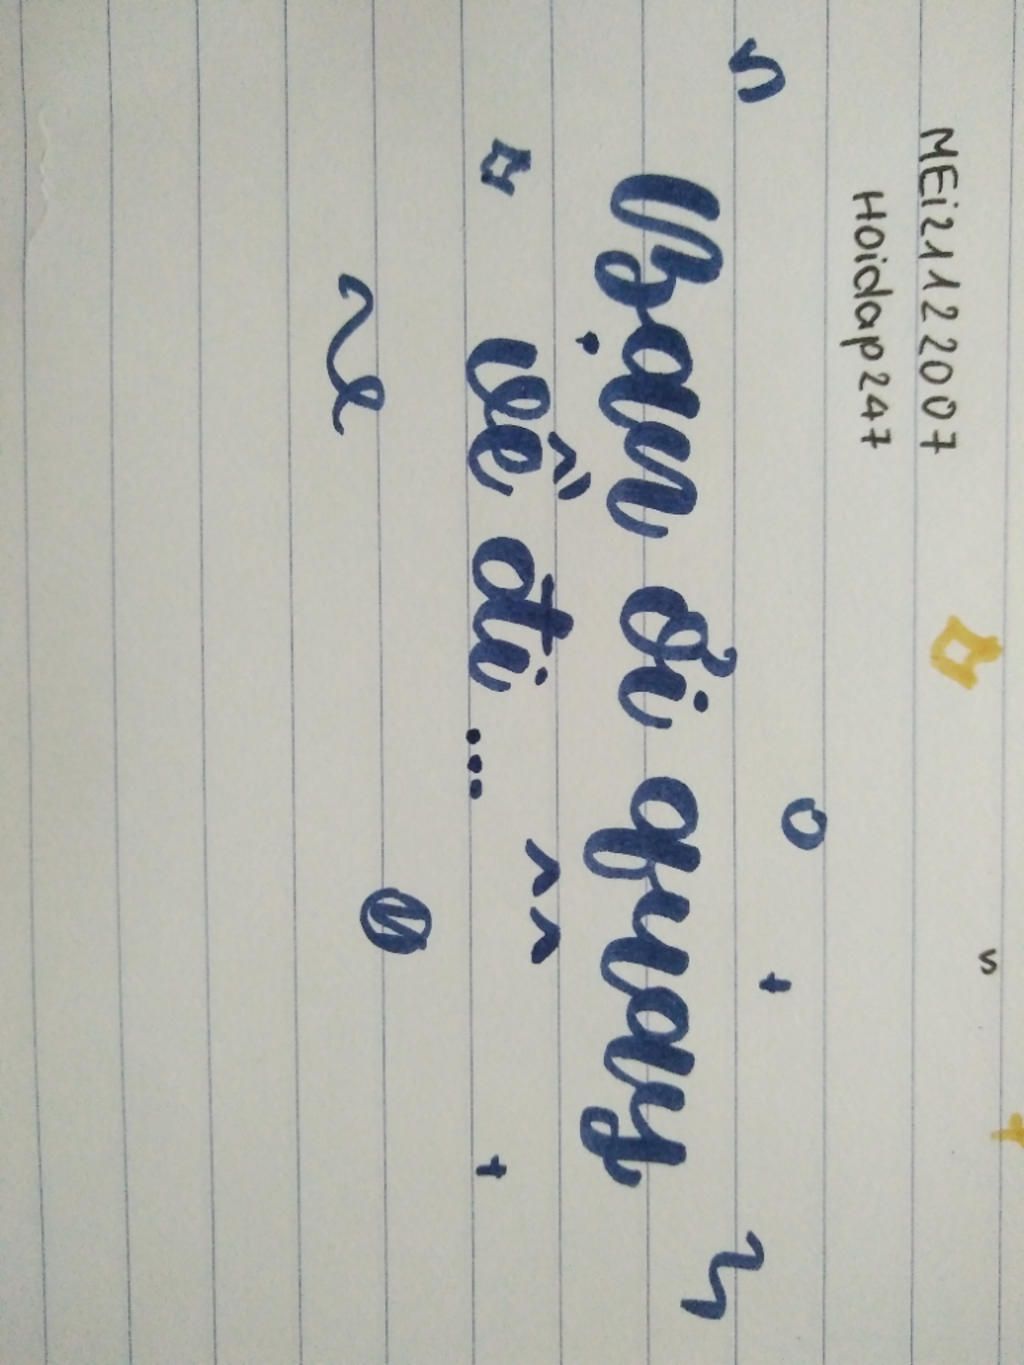 MEi21122007
Hoidap247
Bạn ơi quay
về đi...